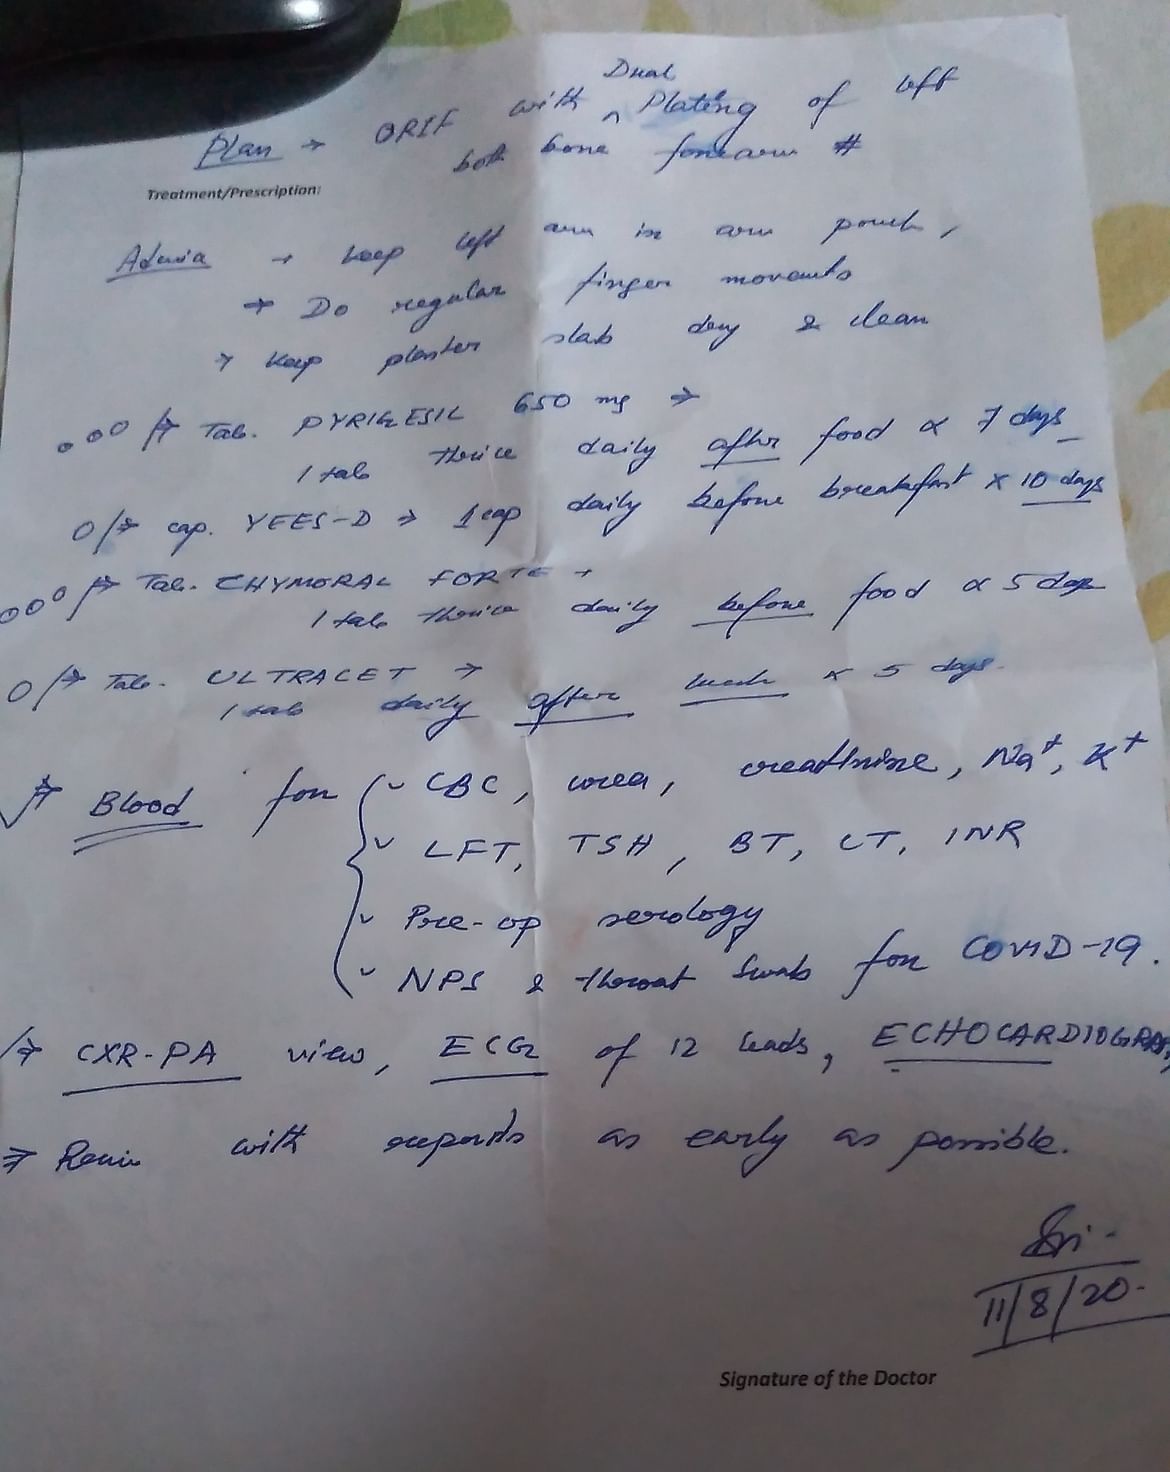 Dual
Plan → ORIF with ^ Plating of left
both bone forearm #
Treatment/Prescription:
Advice → keep left arm in arm pouch,
→ Do regular finger movements
→ keep plaster slab dry & clean
ooo /→ Tab. PYRIGESIC 650 mg →
1 tab thrice daily after food x 7 days
o/→ cap. YEES-D → 1 cap daily before breakfast x 10 days
ooo/→ Tab. CHYMORAL FORTE →
1 tab thrice daily before food x 5 days
o/→ Tab. ULTRACET →
1 tab daily after lunch x 5 days.
→ Blood for { ✓ CBC, urea, creatinine, Na+, K+
✓ LFT, TSH, BT, CT, INR
✓ Pre-op serology
✓ NPS & throat swab for COVID-19.
/→ CXR-PA view, ECG of 12 leads, ECHOCARDIOGRAM,
→ Review with reports as early as possible.
11/8/20.
Signature of the Doctor